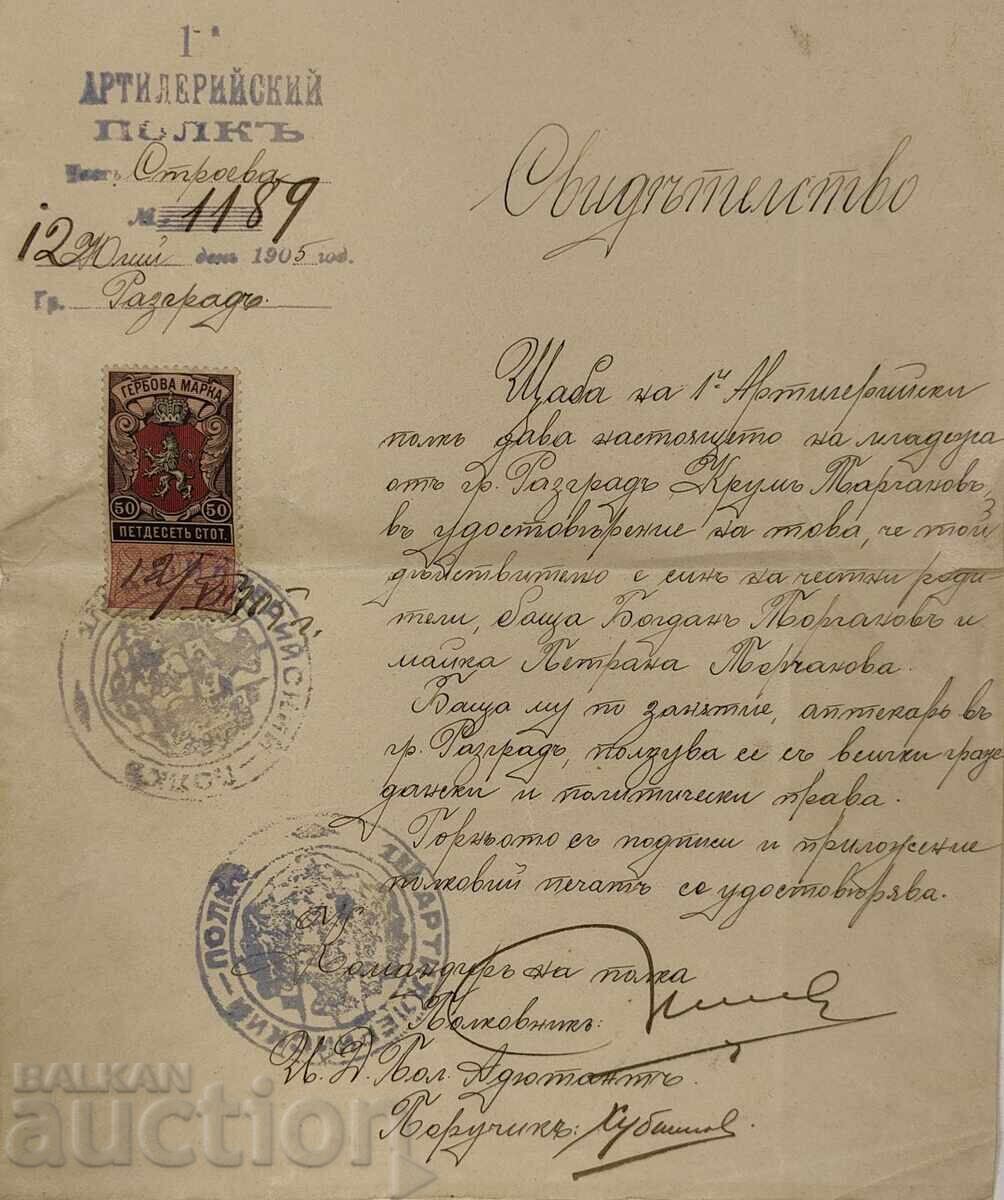 1й
АРТИЛЕРИЙСКИЙ
ПОЛКЪ
Часть Строева
№ 1189
12 Юлий день 1905 год.
Гр. Разградъ.
Свидѣтелство
ГЕРБОВА МАРКА
50 50
ПЕТДЕСЕТЬ СТОТ.
Щаба на 1й Артилерийски
полкъ дава настоящето на младежа
отъ гр. Разградъ, Крумъ Торчановъ,
въ удостовѣрение на това, че той
дѣйствително е синъ на честни роди-
тели, баща Богданъ Торчановъ и
майка Петрана Торчанова.
Баща му по занятие, аптекарь въ
гр. Разградъ, ползува се съ всички граж-
дански и политически права.
Горньото съ подписи и приложение
полковий печатъ се удостовѣрява.
Командиръ на полка
Полковникъ:
И. Д. Пол. Адютантъ.
Поручикъ:
1Й АРТИЛЕРИЙСКИЙ — ПОЛКЪ
BALKAN
auction